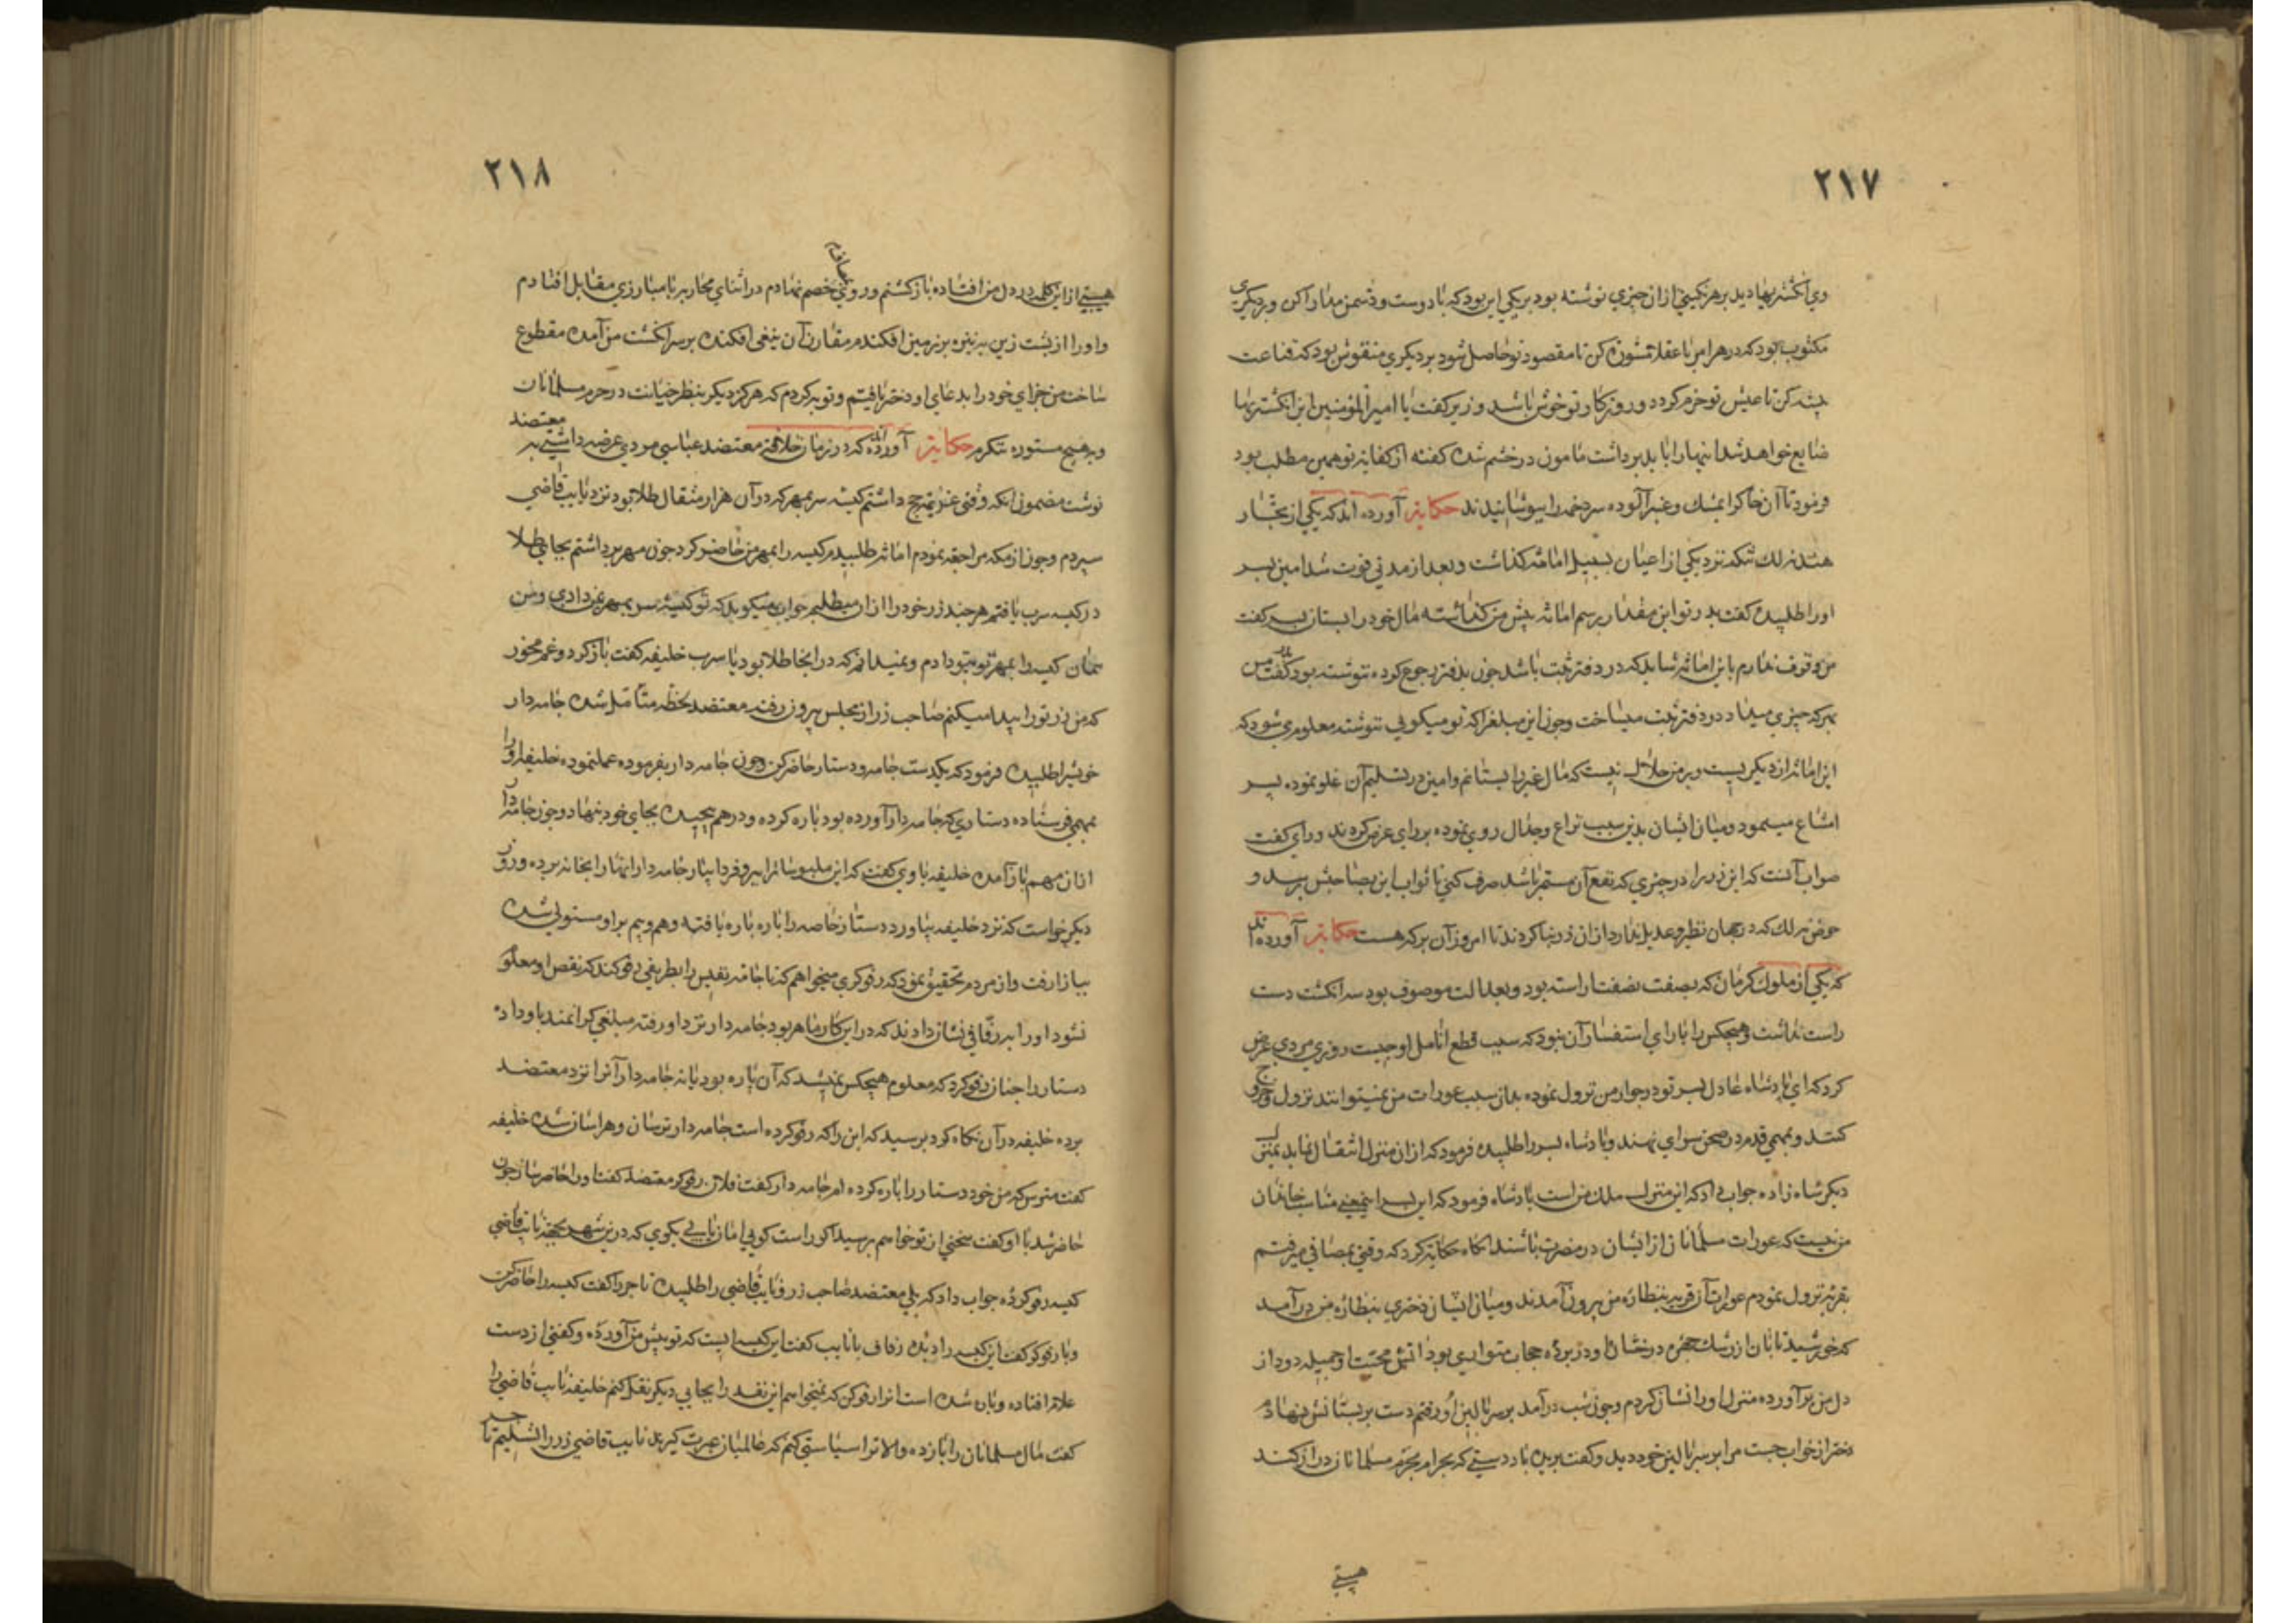 ۲۱۷
وی انگشتریها دید بر هر نگینی از ان چیزی نوشته بود بر یکی این بود که با دوست و دشمن مدارا کن و بر دیگری
مکتوب بود که در هر امر با عقلا مشوره کن تا مقصود تو حاصل شود بر دیگری منقوش بود که قناعت
پیشه کن تا عیش تو خرم کردد و روزکار تو خوش باشد وزیر کفت یا امیر المؤمنین این انکشتریها
ضایع خواهد شد اینها را باید برداشت مامون در خشم شده کفته از کفایة تو همین مطلب بود
فرمود تا آن خاک را بمشک و عنبر آلوده سر دخمه را بپوشانیدند حکایة آورده اند که یکی از تجار
هند نه لك تنکه نزد یکی از اعیان بسبیل امانة کذاشت و بعد از مدتی فوت شد امین پسر
اورا طلبیده کفت پدر تو این مقدار برسم امانة پیش من کذاشته مال خود را بستان پسر کفت
من وقوف ندارم باین امانة شاید که در دفتر ثبت باشد چون بدفتر رجوع کرده ننوشته بود کفت پدر من
بهرکه چیزی میداد در دفتر ثبت میساخت و چون این مبلغ را که تو میکویی ننوشته معلوم می شود که
این امانة از دیکریست و بر من حلال نیست که مال غیر را بستانم و امین در تسلیم آن غلو نموده پسر
امتناع مینمود و میان ایشان بدین سبب نزاع و جدال روی نموده بر رای عرض کردند و رای کفت
صواب آنست که این زر را در چیزی که نفع آن مستمر باشد صرف کنی تا ثواب این بصاحبش برسد و
حوض نه لك که در جهان نظیر و عدیل ندارد از ان زر بنا کردند تا امروز آن برکه هست حکایة آورده اند
که یکی از ملوك کرمان که بصفت نصفت اراسته بود و بعدالت موصوف بود سه انکشت دست
راست نداشت و هیچکس را یارای استفسار آن نبود که سبب قطع انامل او چیست روزی مردی عرض
کرد که ای پادشاه عادل پسر تو در جوار من نزول نموده بدان سبب عورات من نمیتوانند نزول و خروج
کنند و بمهمی قدم در صحن سرای نهند و پادشاه پسر را طلبیده فرمود که از ان منزل انتقال نماید بمنزل
دیکر شاه زاده جواب داد که این منزل ملك من است پادشاه فرمود که این پسر اینمعنی مناسب خاندان
من نیست که عورات مسلمانان از ایشان در مضرت باشند انکاه حکایة کرد که وقتی بمصافی میرفتم
بقریة نزول نمودم عورات آن قریه بنظاره من بیرون آمدند و میان ایشان دختری بنظاره من در آمد
که خورشید تابان از رشك چهره درخشان او در پرده حجاب متواری بود اتش محبت او جمیله دود از
دل من برآورده منزل او را نشان کردم و چون شب در آمد بر سر بالین او رفتم دست بر پستانش نهادم
دختر از خواب جست مرا بر سر بالین خود دید و کفت بریده باد دستی که بحرام بحرم مسلمانان دراز کند
هیبتی
۲۱۸
هیبتی از این کلمه در دل من افتاده باز کشتم و روی خصم نهادم در اثنای محاربه با مبارزی مقابل افتادم
و او را از پشت زین بر نیزه بر زمین افکندم مقارن آن تیغی افکنده بر سر انکشت من آمده مقطوع
ساخت من جزای خود را بدعای او دختر یافتیم و توبه کردم که هرکز دیکر بنظر خیانت در حرم مسلمانان
و بر هیچ مستوره ننکرم حکایة آورده اند که در زمان خلافة معتضد عباسی مردی عرضه داشتی به معتضد
نوشت مضمون انکه وقتی عزیمة حج داشتم کیسه سر بمهر که در آن هزار مثقال طلا بود نزد نایب قاضی
سپردم و چون از مکه مراجعة نمودم امانة طلبیدم کیسه را بمهر من حاضر کرد چون مهر برداشتم بجای طلا
در کیسه سرب یافتم هرچند زر خود را از ان میطلبم جواب میکوید که تو کیسه سر بمهر بمن دادی و من
همان کیسه را بمهر تو بتو دادم و نمیدانم که در انجا طلا بود یا سرب خلیفه کفت باز کرد و غم مخور
که من زر تو را پیدا میکنم صاحب زر از مجلس بیرون رفته معتضد لحظة متامل شده جامه دار
خویش را طلبیده فرمود که یکدست جامه و دستار حاضر کن چون جامه دار بفرموده عمل نموده خلیفه او را
بمهمی فرستاده دستاری که جامه دار آورده بود پاره کرده و در هم پیچیده بجای خود بنهاد و چون جامه دار
از ان مهم باز آمده خلیفه با وی کفت که این ملبوسات را ببر و فردا بیار جامه دار انها را بخانه برده و روز
دیکر خواست که نزد خلیفه بیاورد دستار خاصه را پاره پاره یافته وهم و بیم بر او مستولی شده
ببازار رفت و از مردم تحقیق نمود که رفوکری میخواهم که تا جامه نفیس را بطریقی رفو کند که نقص او معلوم
نشود او را برفّافی نشان دادند که در این کار ماهر بود جامه دار نزد او رفته مبلغی کرانمند باو داده
دستار را چنان رفو کرد که معلوم هیچکس نمیشد که آن پاره بود یا نه جامه دار آنرا نزد معتضد
برده خلیفه در آن نکاه کرد پرسید که این را که رفو کرده است جامه دار ترسان و هراسان شده خلیفه
کفت مترس که من خود دستار را پاره کرده ام جامه دار کفت فلان رفوکر معتضد کفت او را حاضر ساز چون
حاضر شد با او کفت سخنی از تو خواهم پرسید اکر راست کویی امان یابی بکوی که درین شهر بجهة نایب قاضی
کیسه رفو کرده جواب داد که بلی معتضد صاحب زر و نایب قاضی را طلبیده تاجر را کفت کیسه را حاضر کن
و با رفوکر کفت این کیسه را دیده رفاف با نایب کفت این کیسه ایست که تو پیش من آورده و کفتی از دست
غلام افتاده و پاره شده است انرا رفو کن که میخواهم این نقد را بجایی دیکر نقل کنم خلیفه نایب قاضی را
کفت مال مسلمانان را باز ده والا ترا سیاستی کنم که عالمیان عبرت کیرند نایب قاضی زر را تسلیم تاجر